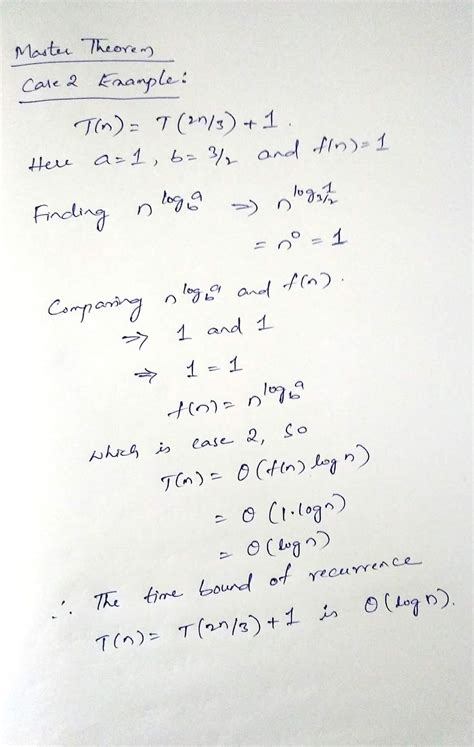 Master Theorem
Case 2 Example:
T(n) = T(2n/3) + 1.
Here a=1, b= 3/2 and f(n)=1
Finding n^log_b a ⇒ n^log_3/2 1
= n^0 = 1
Comparing n^log_b a and f(n).
⇒ 1 and 1
⇒ 1 = 1
f(n) = n^log_b a
which is case 2, so
T(n) = Θ(f(n) log n)
= Θ (1.log n)
= Θ(log n)
∴ The time bound of recurrence
T(n) = T(2n/3) + 1 is Θ(log n).